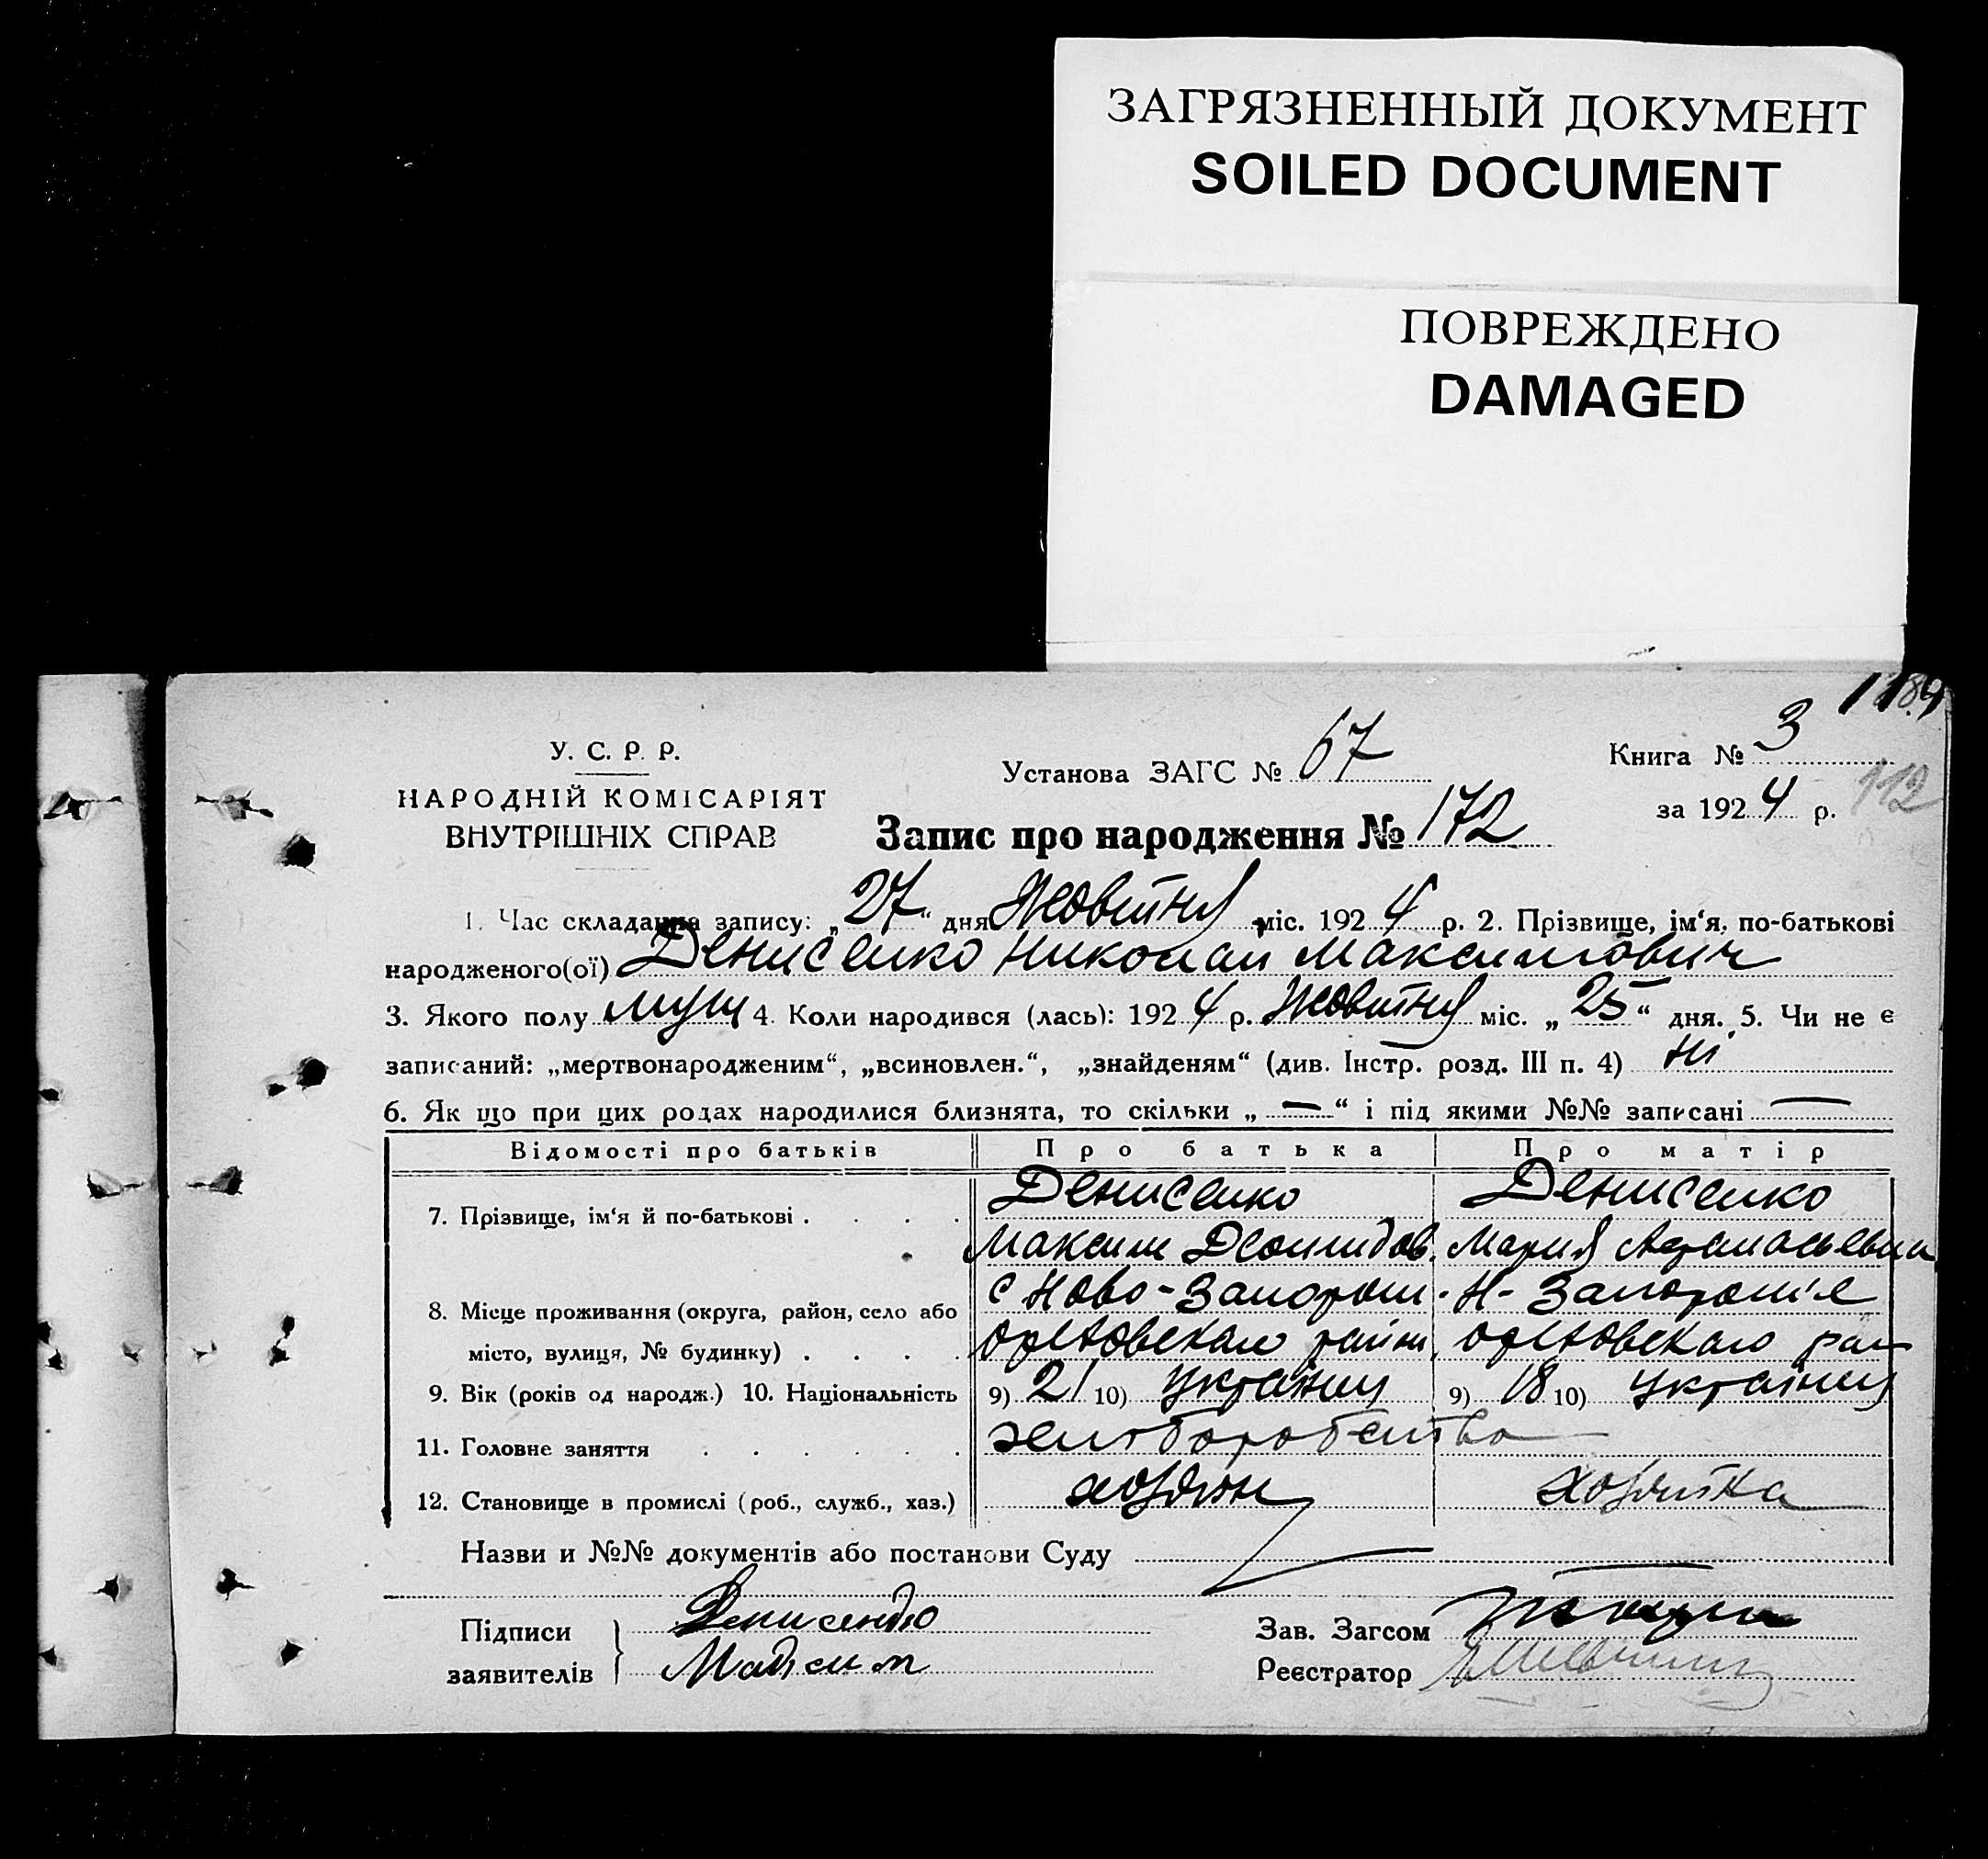 ЗАГРЯЗНЕННЫЙ ДОКУМЕНТ
SOILED DOCUMENT
ПОВРЕЖДЕНО
DAMAGED
У. С. Р. Р.
НАРОДНІЙ КОМІСАРІЯТ
ВНУТРІШНІХ СПРАВ
Установа ЗАГС № 67
Книга № 3
за 1924 р.
112
Запис про народження № 172
1. Час складання запису: „27“ дня Жовтня міс. 1924 р. 2. Прізвище, ім‘я, по-батькові
народженого(ої) Денисенко Николай Максимович
3. Якого полу муж 4. Коли народився (лась): 1924 р. Жовтня міс. „25“ дня. 5. Чи не є
записаний: „мертвонародженим“, „всиновлен.“, „знайденям“ (див. Інстр. розд. III п. 4) ні
6. Як що при цих родах народилися близнята, то скільки „—“ і під якими №№ записані —
Відомості про батьків Про батька Про матір
7. Прізвище, ім‘я й по-батькові . . . . Денисенко Денисенко
Максим Мария
8. Місце проживання (округа, район, село або с Ново-Запорож. Н-Запорож'е
місто, вулиця, № будинку) . . . .
9. Вік (років од народж.) 10. Національність 9) 21 10) 9) 18 10)
11. Головне заняття . . . . . .
12. Становище в промислі (роб., служб., хаз.) хозяин хозяйка
Назви и №№ документів або постанови Суду
Підписи Денисенко
заявителів Максим
Зав. Загсом
Реєстратор